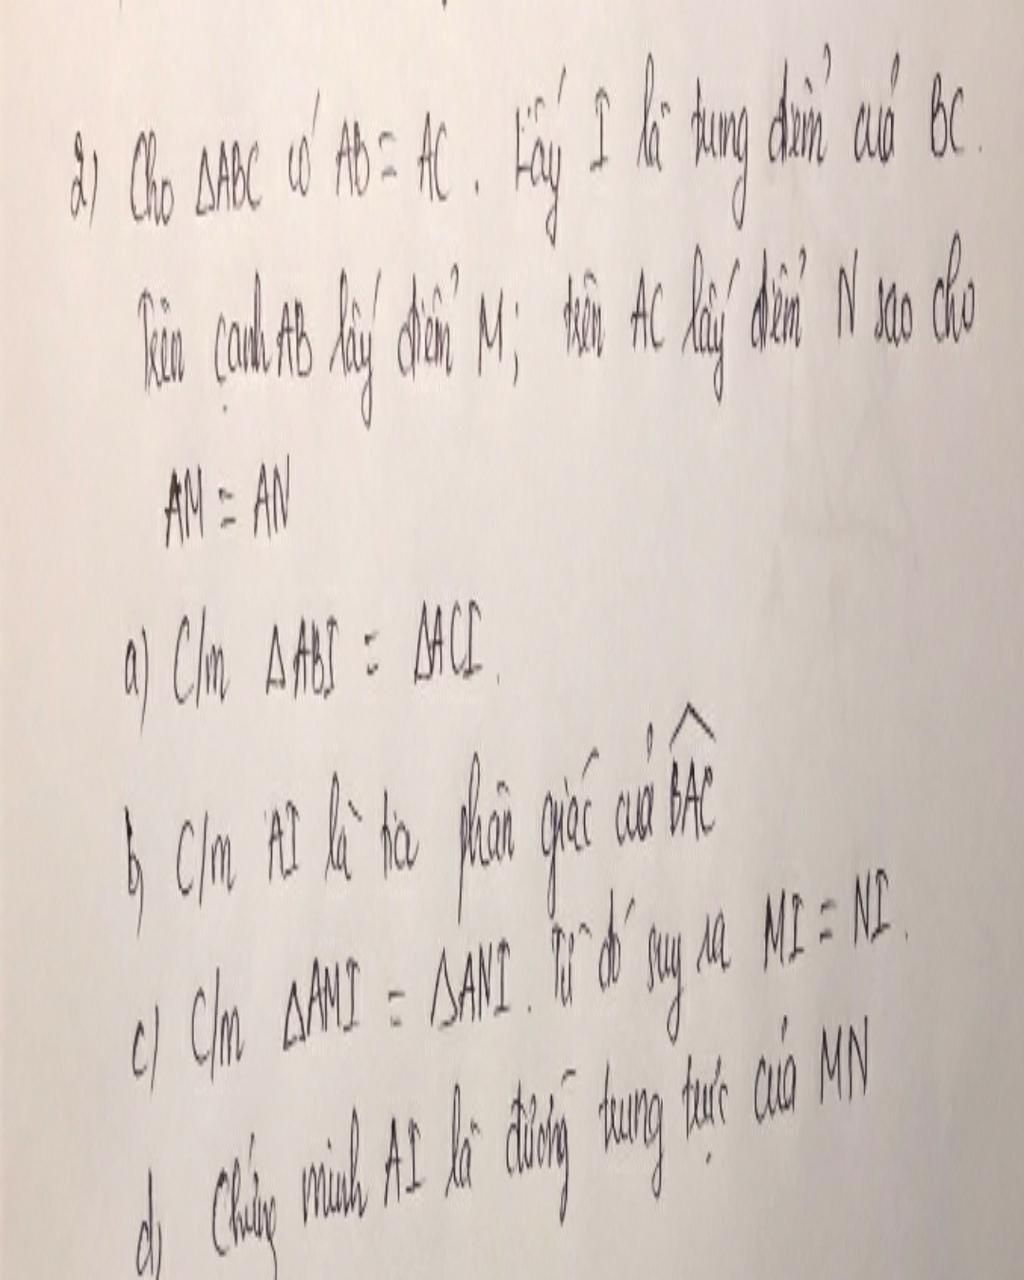 2) Cho ΔABC có AB = AC. Lấy I là trung điểm của BC.
Trên cạnh AB lấy điểm M; trên AC lấy điểm N sao cho
AM = AN
a) C/m ΔABI = ΔACI.
b) C/m AI là tia phân giác của \widehat{BAC}
c) C/m ΔAMI = ΔANI. Từ đó suy ra MI = NI.
d) Chứng minh AI là đường trung trực của MN